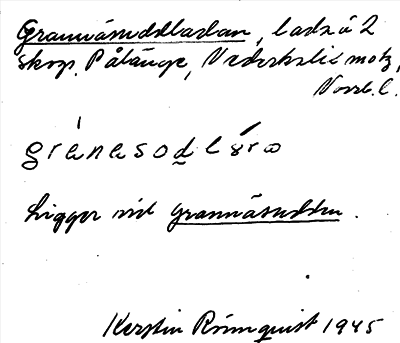 Grannäsuddladan, lada å 2
skogs. Påläng, Nederkalix mots,
Norrb. l.
grànasodlára
Ligger vid Grannäsudden.
Kerstin Rönnquist 1945